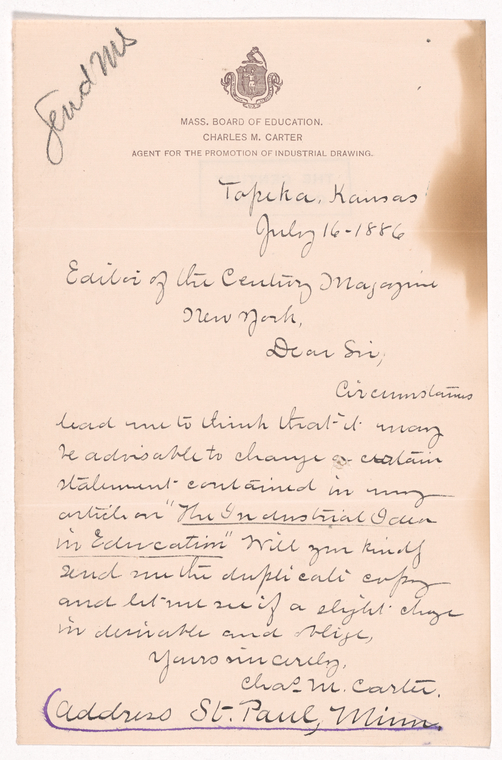 Send MS
MASS. BOARD OF EDUCATION.
CHARLES M. CARTER
AGENT FOR THE PROMOTION OF INDUSTRIAL DRAWING.
Topeka, Kansas
July 16-1886
Editor of the Century Magazine
New York,
Dear Sir,
Circumstances
lead me to think that it may
be advisable to change a certain
statement contained in my
article on "The Industrial Idea
in Education" Will you kindly
send me the duplicate copy
and let me see if a slight change
is desirable and oblige,
Yours sincerely,
Chas. M. Carter.
Address St. Paul, Minn.